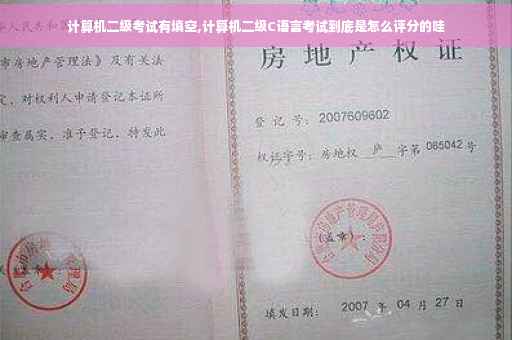 计算机二级考试有填空,计算机二级C语言考试到底是怎么评分的哇
市房地产管理法》及有关法
定，对权利人申请登记本证所
审查属实，准予登记，特发此
房地产权证
登记号：2007609602
权证字号：房地权 庐 字第 065042 号
(盖章)：
填发日期： 2007 年 04 月 27 日